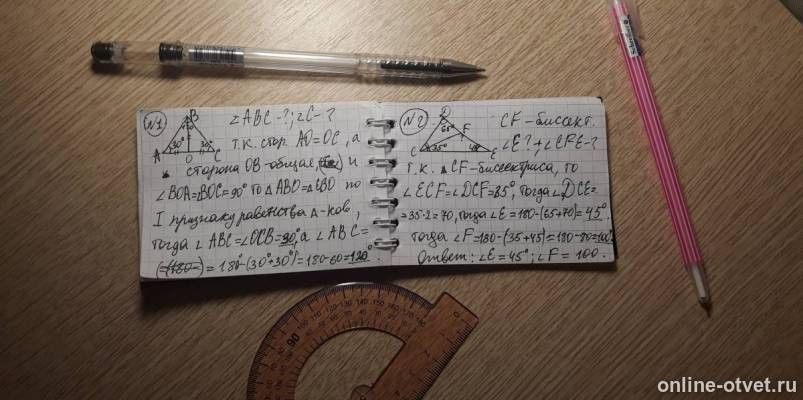 N1
∠ABC-?; ∠C-?
B
30°
30°
A
O
C
т.к. стор. AO=OC, а
сторона OB-общая, и
∠BOA=∠BOC=90° то △ABO=△CBO по
I признаку равенства △-ков,
тогда ∠ABC=∠OCB=30°, а ∠ABC=
=180-(30°+30°)=180-60=120°.
N2
CF-бисект.
∠E?; ∠CFE-?
D
65°
F
C
35°
E
т.к. CF-биссектриса, то
∠ECF=∠DCF=35°, тогда ∠DCE=
=35·2=70, тогда ∠E=180-(65+70)=45°.
тогда ∠F=180-(35+45)=180-80=100°
Ответ: ∠E=45°; ∠F=100.
90
online-otvet.ru